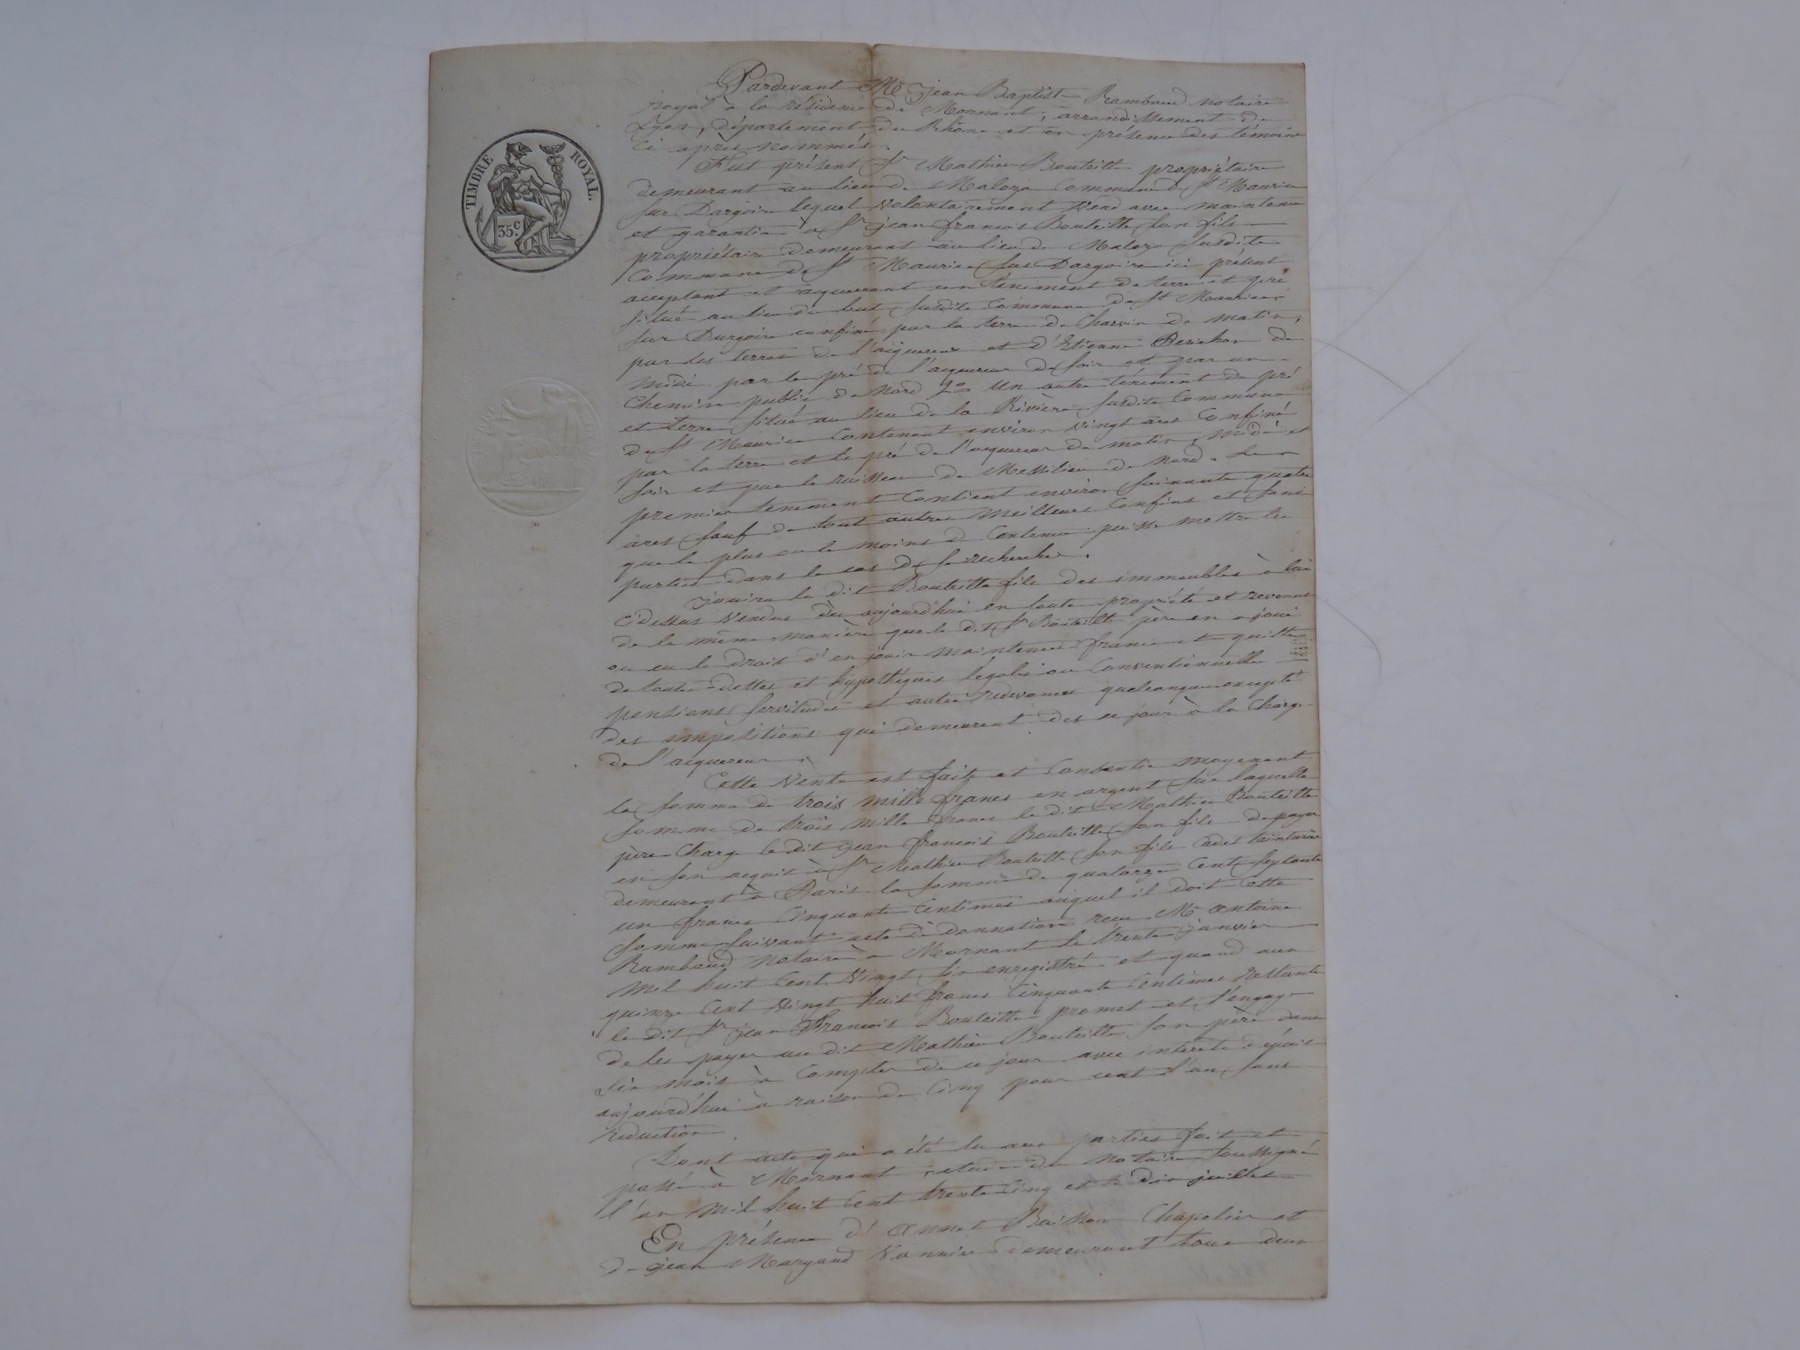 TIMBRE ROYAL.
35 c.
Pardevant Me Jean Baptiste Rambaud notaire
royal à la résidence de Mornant, arrondissement de
Lyon, département du Rhône et en présence des témoins
ci après nommés.
Fut présent Sr Mathieu Bouteille propriétaire
demeurant au lieu de Maloza Commune de St Maurice
sur Dargoire lequel volontairement vend avec maintenue
et garantie à Sr jean francois Bouteille son fils
propriétaire demeurant au lieu de Maloza susdite
Commune de St Maurice sur Dargoire ici présent
acceptant et aquerrant un ténement de terre et pré
situé au lieu du but susdite commune de St Maurice
sur Dargoire confiné par la terre de Charvin de matin,
par les terres de l'aiquereur et d'Etienne de
midi par le pré de l'aiquereur de soir et par un
Chemin public de Nord 2o Un autre ténement de pré
et terre situé au lieu de la Rivière susdite Commune
de St Maurice Contenant environ vingt ares Confiné
par la terre et le pré de l'aiquereur de matin, midi et
soir et par le ruisseau de de Nord. Le
premier ténement Contient environ soixante quatre
ares sauf de tout autres Meilleurs Confins et sans
que le plus ou le moins de Contenue puisse mettre les
parties dans le cas de se rechercher.
jouira le dit Bouteille fils des immeubles à lui
cidessus vendus dès aujourdhui en toute propriété et revenus
de la même manière que le dit Sr Bouteille père en a joui
ou eu le droit d'en jouir maintenus francs et quittes
de toute dettes et hypothèques légales ou Conventionnelles
pensions servitudes et autre redevances quelconques excepté
des impositions qui demeurent des ce jour à la Charge
de l'aiquereur.
Cette Vente est faite et Consentie moyennant
la somme de trois mille francs en argent sur laquelle
somme de trois mille francs le dit Mathieu Bouteille
père Charge le dit jean francois Bouteille son fils de payer
en son acquit à Sr Mathieu Bouteille son fils cadet teinturier
demeurant à Paris la somme de quatorze Cent septante
un francs Cinquante Centimes auquel il doit Cette
somme suivant acte de donnation reçu Me Antoine
Rambaud notaire à Mornant le trente janvier
mil huit Cent Vingt six enregistré et quand aux
quinze Cent Vingt huit francs Cinquante Centimes restants
le dit Sr jean francois Bouteille promet et s'engage
de les payer au dit Mathieu Bouteille son père dans
six mois à Compter de ce jour avec intérêts depuis
aujourdhui à raison de Cinq pour cent l'an sans
reduction
Dont acte qui a été lu aux parties fait et
passé à Mornant etude du notaire soussigné
l'an mil huit Cent trente cinq et le dix juillet
En présence d'annet Buisson Chapelier et
de jean Vannier demeurant tous deux